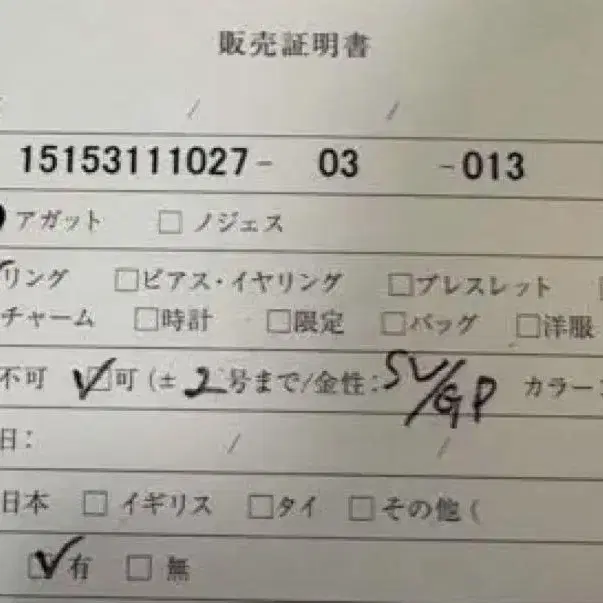 販売証明書
/ /
15153111027- 03 -013
アガット □ ノジェス
リング □ピアス・イヤリング □ブレスレット
チャーム □時計 □限定 □バッグ □洋服
不可 ☑可(± 2 号まで/金性:SV/GP カラー:
日: / /
日本 □ イギリス □タイ □その他(
☑有 □ 無